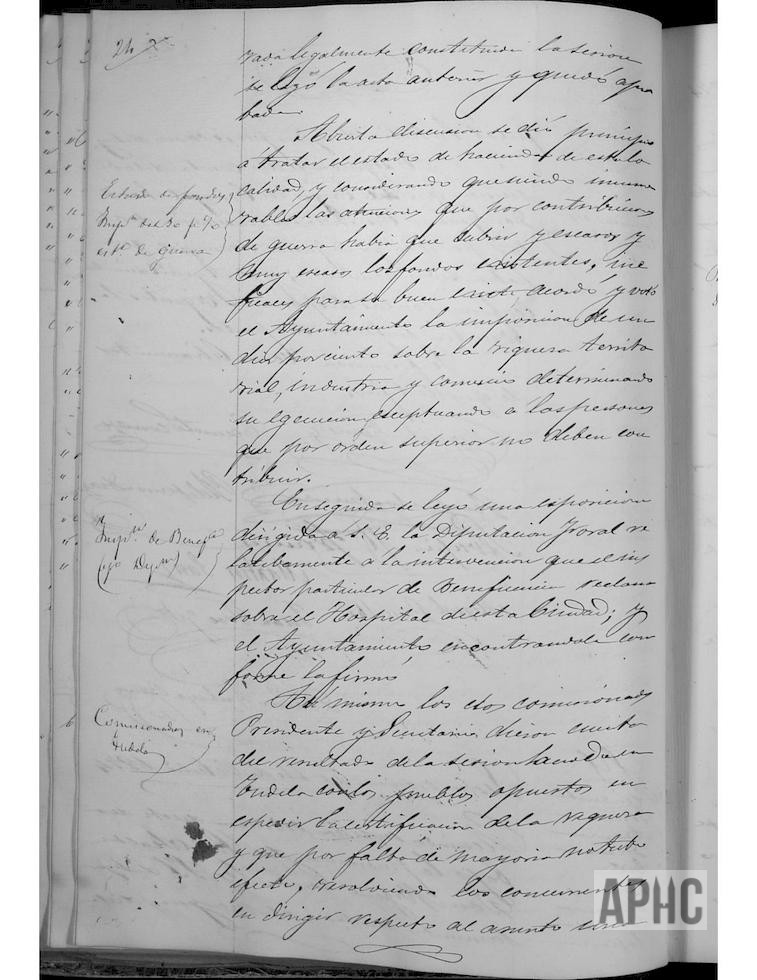 24
rada legalmente constituida la sesion
se leyó la acta anterior y quedó apro
bada.
Abierta discusion se dió principio
á tratar el estado de hacienda de esta lo
calidad, y considerando que siendo innume
rables las atenciones que por contribucion
de guerra habia que cubrir y escasos y
muy escasos los fondos existentes, ine
ficaces para su buen exito acordó y votó
el Ayuntamiento la imposicion de un
diez por ciento sobre la riqueza territo
rial, industria y comercio determinando
su egecucion esceptuando á las personas
que por orden superior no deben con
tribuir.
Enseguida se leyó una esposicion
dirigida á S. E. la Diputacion Foral re
lativamente á la intervencion que el ins
pector particular de Beneficencia reclama
sobre el Hospital de esta Ciudad; y
el Ayuntamiento encontrandola con
forme la firmó
Asi mismo los comisionados
Presidente y Secretario dieron cuenta
del resultado de la sesion habida en
Tudela con los pueblos opuestos en
espedir la certificacion de la riqueza
y que por falta de mayoria no tubo
efecto, resolviendo los concurrentes
en dirigir respecto al asunto una
Estado de fondos
Imp.n del
de guerra
de Benef.a
Comisionados en
Tudela
APHC